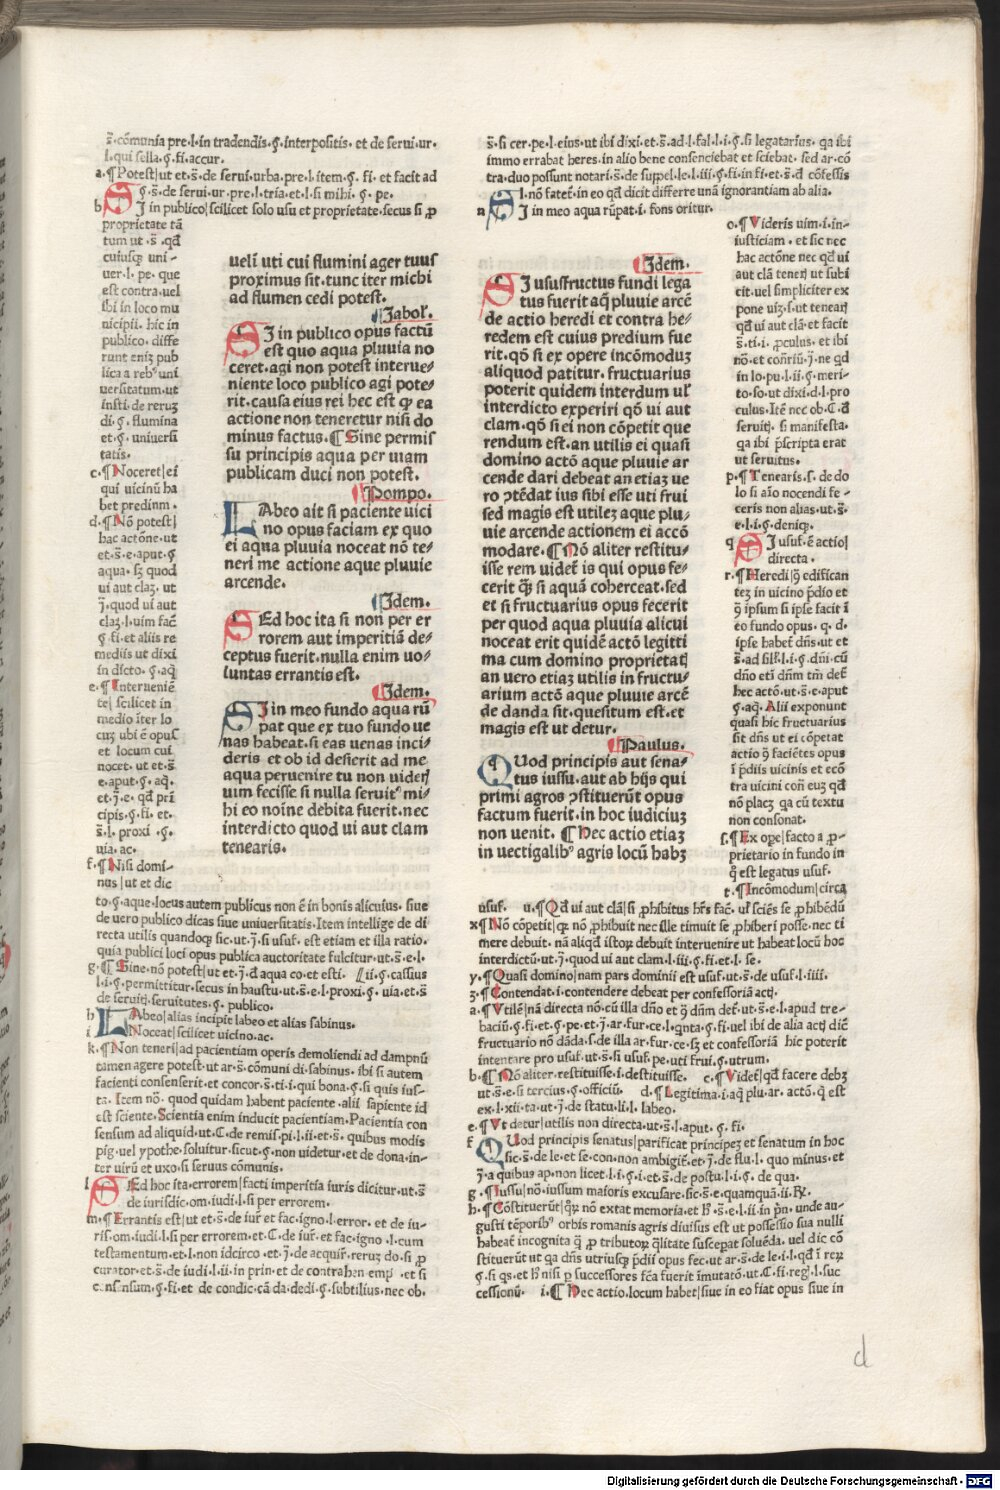 s̄.cōmunia pre.l.in tradendis.§.interpositis. et de serui.ur.
l.qui sella.§.fi.accur.
a.¶Potest|ut et.s̄.de serui.urba.pre.l.item.§. fi. et facit ad
§.s̄.de serui.ur.pre.l.tria.et.l.si mihi. §. pe.
b SI in publico|scilicet solo usu et proprietate.secus si ꝓ
proprietate tā
tum ut .s̄ .qđ
cuiusqꝫ uni-
uer.l. pe. que
est contra.uel
ibi in loco mu
nicipii. hic in
publico. diffe
runt enīꝫ pub
lica a rebꝰ uni
uersitatum.ut
insti.de rerūꝫ
di.§. flumina
et.§. uniuersi
tatis.
c.¶Noceret|ei
qui uicinū ha
bet predium.
d.¶Nō potest|
hac actōne.ut
et.s̄.e.aput.§
aqua. sꝫ quod
ui aut claꝫ. ut
j̄.quod ui aut
claꝫ.l.uim fac̄
§.fi.et aliis re
mediis ut dixi
in dicto. §.aq̄
e.¶Interueniē
te| scilicet in
medio iter lo
cuꝫ ubi ē opuſ
et locum cui
nocet. ut et.s̄
e.aput.§. aq̄.
et.j̄.e. qđ pri
cipis.§.fi. et.
s̄.l. proxi .§.
uia.ac.
f.¶Nisi domi-
nus |ut et dic
to.§.aque.locus autem publicus non ē in bonis alicuius. siue
de uero publico dicas siue uniuersitatis.Item intellige de di
recta utilis quandoqꝫ sic.ut.j̄.si usuf. est etiam et illa ratio.
quia publici loci opus publica auctoritate fulcitur.ut.s̄.e.l.
g.¶Sine.nō potest|ut et.j̄.đ aqua co.et esti. ⁋ii.§.cassius
l.i.§.permittitur.secus in haustu.ut.s̄.e.l.proxi.§. uia.et.s̄
de seruitꝭ.seruitutes.§. publico.
h LAbeo|alias incipit labeo et alias sabinus.
i Noceat|scilicet uicino.ac.
k.¶Non teneri|ad pacientiam operis demoliendi ad dampnū
tamen agere potest.ut ar.s̄.cōmuni di.sabinus. ibi si autem
facienti consenserit.et concor.s̄.ti.i.qui bona.§.si quis ius-
ta. Item nō. quod quidam habent paciente .alii sapiente id
est sciente.Scientia enim inducit pacientiam.Pacientia con
sensum ad aliquid.ut.C.de remis.pi.l.ii.et.s̄. quibus modis
pig.uel ypothe.soluitur.sicut.§.non uidetur.et de dona.in-
ter uirū et uxo.si seruus cōmunis.
l SEd hoc ita.errorem|facti imperitia iuris dicitur.ut.s̄
de iurisdic.om.iudi.l.si per errorem.
m.¶Errantis est|ut et.s̄.de iur̄ et fac.igno.l.error. et de iu-
ris.om.iudi.l.si per errorem.et.C.de iur̄.et fac.igno .l.cum
testamentum.et.l.non idcirco .et.j̄.de acquir̄.reruꝫ do.si ꝓ
curator.et.s̄.de iudi.l.ii.in prin.et de contrahen emp .et si
consensum.§.fi.et de condic.cā da.dedi.§.subtilius.nec ob.
uelī uti cui flumini ager tuus
proximus sit.tunc iter michi
ad flumen cedi potest.
¶Jabol̄.
SI in publico opus factū
est quo aqua pluuia no
ceret.agi non potest interue=
niente loco publico agi pote=
rit.causa eius rei hec est ꝙ ea
actione non teneretur nisi do
minus factus.¶Sine permis
su principis aqua per uiam
publicam duci non potest.
¶Pompo.
LAbeo ait si paciente uici
no opus faciam ex quo
ei aqua pluuia noceat nō te=
neri me actione aque pluuie
arcende.
¶Idem.
SEd hoc ita si non per er
rorem aut imperitiā de=
ceptus fuerit.nulla enim uo=
luntas errantis est.
¶Idem.
SI in meo fundo aqua rū
pat que ex tuo fundo ue
nas habeat.si eas uenas inci=
deris et ob id desierit ad me
aqua peruenire tu non uiderꝭ
uim fecisse si nulla seruitꝰ mi=
hi eo noīne debita fuerit.nec
interdicto quod ui aut clam
tenearis.
s̄.si cer.pe.l.eius.ut ibi dixi.et.s̄.ad.l.fal.l.i.§.si legatarius. qa ibi
immo errabat heres.in alio bene consenciebat et sciebat. sed ar.cō
tra.duo possunt notari.s̄.de suspel.le.l.iii.§.fi.in fi.et.s̄.đ cōfessis
l.nō fatet̄.in eo qđ dicit differre unā ignorantiam ab alia.
n SI in meo aqua rūpat.i. fons oritur.
¶Idem.
SI ususfructus fundi lega
tus fuerit aq̄ pluuie arcē
de actio heredi et contra he=
redem est cuius predium fue
rit.qō si ex opere incōmoduꝫ
aliquod patitur. fructuarius
poterit quidem interdum ul̄
interdicto experiri qō ui aut
clam.qō si ei non cōpetit que
rendum est.an utilis ei quasi
domino actō aque pluuie ar
cende dari debeat an etiaꝫ ue
ro ꝯtēdat ius sibi esse uti frui
sed magis est utileꝫ aque plu=
uie arcende actionem ei accō
modare.¶Nō aliter restitu=
isse rem uidet̄ is qui opus fe=
cerit q̄ꝫ si aquā coherceat.sed
et si fructuarius opus fecerit
per quod aqua pluuia alicui
noceat erit quidē actō legitti
ma cum domino proprietatꝭ
an uero etiaꝫ utilis in fructu=
arium actō aque pluuie arcē
de danda sit.quesitum est.et
magis est ut detur.
¶Paulus.
QUod principis aut sena=
tus iussu.aut ab hijs qui
primi agros ꝯstituerūt opus
factum fuerit.in hoc iudiciuꝫ
non uenit. ¶Hec actio etiaꝫ
in uectigalibꝰ agris locū habꝫ
o.¶Videris uim.i.in-
iusticiam . et sic nec
hac actōne nec qđ ui
aut clā tenerꝭ ut subi
cit.uel simpliciter ex
pone uiꝫ.s.ut tenearꝭ
qđ ui aut clā.et facit
s̄.ti.i. ꝓculus. et ibi
nō.et con̄riū.j̄.ne qd
in lo.pu.l.ii.§.meri-
to.so.ut dixi.d.l.pro
culus.Itē nec ob.C.đ
seruitꝭ. si manifesta.
qa ibi p̄scripta erat
ut seruitus.
p.¶Tenearis.s. de do
lo si aīo nocendi fe-
ceris non alias.ut.s̄.
e.l.i.§.deniqꝫ.
q SI usuf.ē actio|
directa.
r.¶Heredi|q̄ edifican
teꝫ in uicino p̄dio et
q̄ ipsum si ipse facit ī
eo fundo opus. q. d.
ipse habet dn̄s.ut et
s̄.ad sil̄.l.i.§.dn̄i.cū
dn̄o etī dn̄m tm̄ det̄
hec actō.ut.s̄.e.aput
§.aq̄. Alii exponunt
quasi hic fructuarius
sit dn̄s ut ei cōpetat
actio q̄ faciētes opus
ī p̄diis uicinis et ecō
tra uicini con̄ euꝫ qđ
nō placꝫ qa cū textu
non consonat.
s.¶Ex ope|facto a ꝓ-
prietario in fundo in
q̄ est legatus usuf.
t.¶Incōmodum|circa
usuf. u.¶Qđ ui aut clā|si ꝓhibitus hr̄s fac̄. ul̄ sciēs se ꝓhibēdū
x¶Nō cōpetit|qꝫ nō ꝓhibuit nec ille timuit se ꝓhiberi posse.nec ti
mere debuit. nā aliqđ istoꝝ debuit interuenire ut habeat locū hoc
interdictū.ut.j̄.quod ui aut clam.l.iii.§.fi.et.l. se.
y.¶Quasi domino|nam pars dominii est usuf.ut.s̄.de usuf.l.iiii.
ꝫ.¶Contendat.i.contendere debeat per confessoriā actꝭ.
a.¶Vtilē|nā directa nō.cū illa dn̄o et q̄ dn̄m det̄.ut.s̄.e.l.apud tre-
baciū.§.fi.et.§.pe.et.j̄.ar.fur.ce.l.qnta.§.fi.uel ibi de alia actꝭ dic̄
fructuario nō dāda.s.de illa ar.fur.ce.sꝫ et confessoriā hic poterit
intentare pro usuf.ut.s̄.si usuf.pe.uti frui.§.utrum.
b.¶Nō aliter.restituisse.i.destituisse. c.¶Videt̄|qđ facere debꝫ
ut.s̄.e.si tercius.§.officiū. d.¶Legitima.i.aq̄ plu.ar. actō.q̄ est
ex.l.xii.ta.ut.j̄.de statu.li.l. labeo.
e.¶Vt detur|utilis non directa.ut.s̄.l.aput.§. fi.
f QUod principis senatus|parificat principeꝫ et senatum in hoc
sic.s̄.de le.et se.con.non ambigit̄.et.j̄.de flu.l. quo minus.et
j̄.a quibus ap.non licet.l.i.§.i.et.s̄.de postu.l.i.§. de qua.
g.¶Iussu|nō.iussum maioris excusare.sic.s̄.e.quamquā.ii.℞.
h.¶Cōstituerūt|qꝫ nō extat memoria.et hꝰ.s̄.e.l.ii.in p̄n. unde au-
gusti tēporibꝰ orbis romanis agris diuisus est ut possessio sua nulli
habeat̄ incognita q̄ ꝓ tributoꝝ q̄litate suscepat soluēda. uel dic cō
stituerūt ut qa dn̄s utriusqꝫ p̄dii opus fec.ut ar.s̄.de le.i.l.qđ ī reꝝ
§.si qs.et hꝰ nisi ꝑ successores fc̄a fuerit īmutatō.ut.C.fi.regꝭ.l.suc
cessionū. i.¶Hec actio.locum habet|siue in eo fiat opus siue in
d
Digitalisierung gefördert durch die Deutsche Forschungsgemeinschaft - DFG